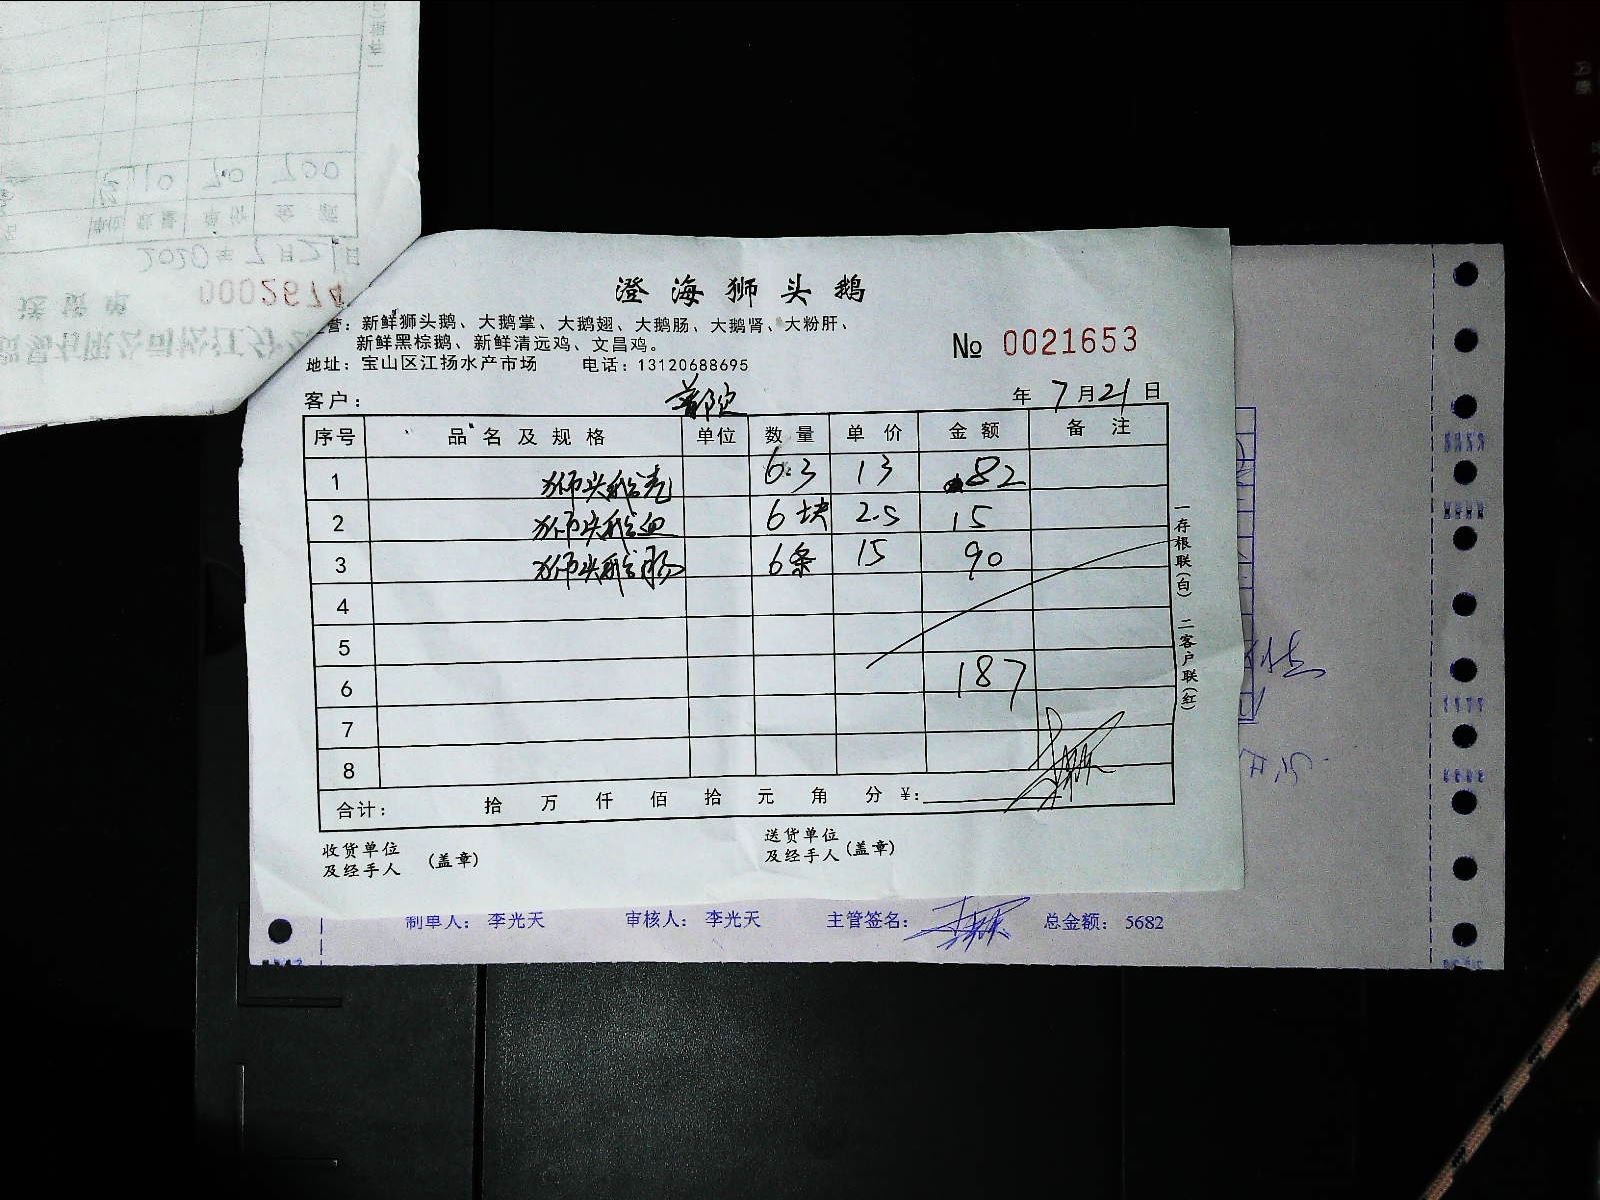 澄海狮头鹅
营：新鲜狮头鹅、大鹅掌、大鹅翅、大鹅肠、大鹅肾、大粉肝、
新鲜黑棕鹅、新鲜清远鸡、文昌鸡。
№ 0021653
地址：宝山区江扬水产市场 电话：13120688695
客户： 年 7月21日
序号 品名及规格 单位 数量 单价 金额 备注
1 狮头鹅壳 6.3 13 82
2 狮头鹅血 6块 2.5 15
3 狮头鹅肠 6条 15 90
4
5
6 187
7
8
合计： 拾 万 仟 佰 拾 元 角 分 ¥：
收货单位
及经手人 (盖章)
送货单位
及经手人 (盖章)
一存根联(白) 二客户联(红)
制单人： 李光天 审核人： 李光天 主管签名： 总金额： 5682
送货单 0002674
2020年7月21日
单位 数量 单价 金额
10 70 700